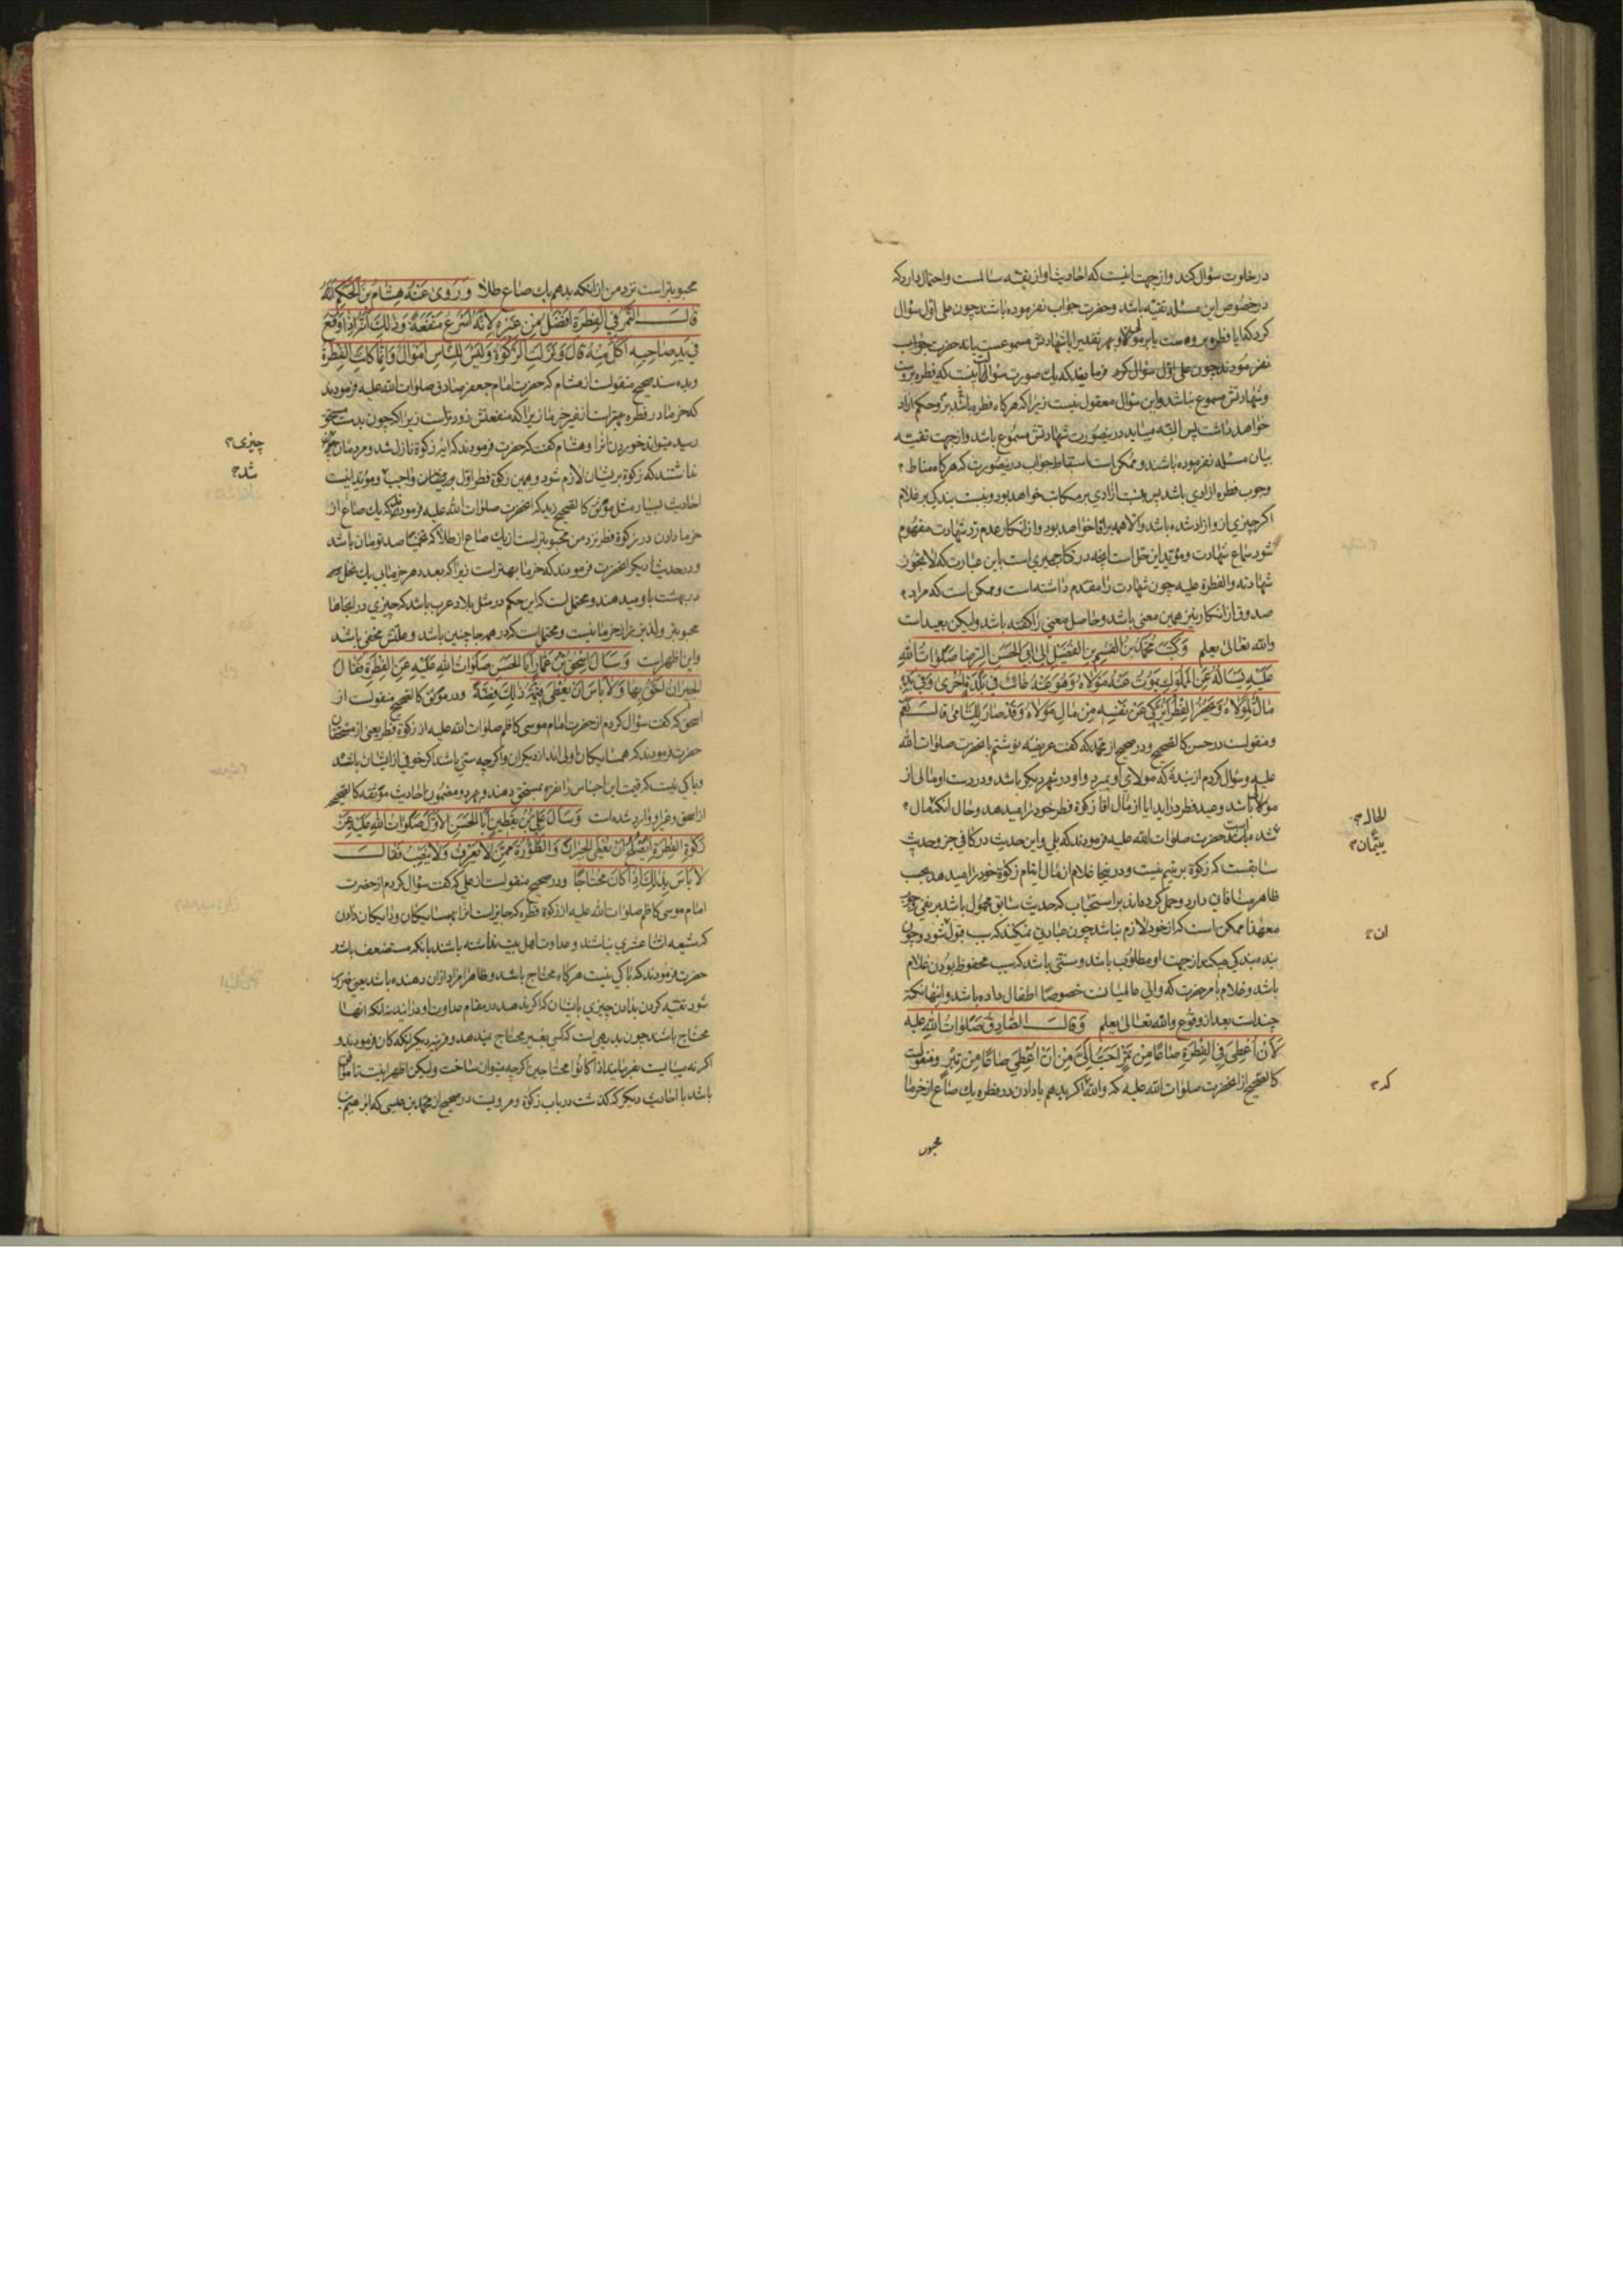 در خلوت سؤال کند و از جهت اینست که احادیث او از تقیه سالمست و احتمال دارد که
در خصوص این مسئله تقیه باشد و حضرت جواب نفرموده باشند چون علی اول سؤال
کرد که ایا فطره بروست یا بر مولا و بهر تقدیر ایا شهادتش مسموعست یا نه حضرت جواب
نفرمودند چون علی اول سؤال کرد فرمایند که یک صورت سؤال اینست که فطره بروست
و شهادتش مسموع نباشد و این سؤال معقول نیست زیرا که هرگاه فطره باشد برو حکم ازاد
خواهد داشت پس البته میباید درینصورت شهادتش مسموع باشد و از جهت تقیه
بیان مسئله نفرموده باشند و ممکن است اسقاط جواب درینصورت که هرگاه مناط
وجوب فطره ازادی باشد پس بنسبت ازادی بر مکاتب خواهد بود و بنسبت بندکی بر غلام
اکر چیزی ازو ازاد شده باشد والا همه بر اقا خواهد بود و از انکار عدم رد شهادت مفهوم
شود سماع شهادت و مؤید این حل است انچه در کتاب حمیری است باین عبارت که لا تجوز
شهادته والفطرة علیه چون شهادت را مقدم داشته است و ممکن است که مراد
صدوق از انکار نیز همین معنی باشد و حاصل معنی را گفته باشد ولیکن بعید است
والله تعالی یعلم وَكَتَبَ مُحَمَّدُ بْنُ الْقٰسِمِ بْنِ الْفُضَيْلِ اِلٰى اَبِى الْحَسَنِ الرِّضا صَلَوٰاتُ اللهِ
عَلَيْهِ يَسْأَلُهُ عَنِ الْمَمْلُوكِ يَمُوتُ عَنْهُ مَوْلاهُ وَهُوَ عَنْهُ غائِبٌ فى بَلْدَةٍ اُخْرىٰ وَفى يَدِهِ
مالٌ لِمَوْلاهُ وَيَحْضُرُ الْفِطْرُ اَيُزَكّى عَنْ نَفْسِهِ مِنْ مالِ مَوْلاهُ وَقَدْ صارَ لِلْيَتامى قالَ نَعَمْ
و منقولست در حسن کالصحیح و در صحیح از محمد که گفت عریضه نوشتم بانحضرت صلوات الله
علیه و سؤال کردم از بنده که مولای او بمیرد و او در شهر دیکر باشد و در دست او مالی از
مولا باشد و عید فطر دراید ایا از مال اقا زکوة فطر خود را میدهد و حال انکه مال
شده باشد حضرت صلوات الله علیه فرمودند که بلی و این حدیث در کافی جزو حدیث
سابقست که زکوة بر یتیم نیست و در اینجا غلام از مال ایتام زکوة خود را میدهد بحسب
ظاهر منافات دارد و حمل کرده اند بر استحباب که حدیث سابق محمول باشد بر نفی وجوب
معهذا ممکن است که از خود لازم نباشد چون عبادتی نمیکند که سبب قبول شود و چون
بنده بندکی میکند از جهت او مطلوب باشد و سنتی باشد که سبب محفوظ بودن غلام
باشد و غلام بامر حضرت که والی عالمیانست خصوصا اطفال داده باشد و اینها نکته
چند است بعد از وقوع والله تعالی یعلم وَقالَ الصّادِقُ صَلَوٰاتُ اللهِ علیه
لَاَنْ اُعْطِىَ فِى الْفِطْرَةِ صاعًا مِنْ تَمْرٍ اَحَبُّ اِلَىَّ مِنْ اَنْ اُعْطِىَ صاعًا مِنْ تِبْرٍ و منقولست
کالصحیح از انحضرت صلوات الله علیه که والله اکر بدهم یا دادن در فطره یک صاع از خرما
محبوب
لحال
یتیمان
ان
که
محبوبتر است نزد من از انکه بدهم یک صاع طلا وَ رَوىٰ عَنْهُ هِشامُ بْنُ الْحَكَمِ اَنَّهُ
قالَ التَّمْرُ فِى الْفِطْرَةِ اَفْضَلُ مِنْ غَيْرِهِ لِاَنَّهُ اَسْرَعُ مَنْفَعَةً وَذٰلِكَ اَنَّهُ اِذا وَقَعَ
فى يَدِ صاحِبِهِ اَكَلَ مِنْهُ قالَ وَنَزَلَتِ الزَّكٰوةُ وَلَيْسَ لِلنّاسِ اَمْوالٌ وَاِنَّما كانَتِ الْفِطْرَةُ
و بده سند صحیح منقولست از هشام که حضرت امام جعفر صادق صلوات الله علیه فرمودند
که خرما در فطره بهتر است از غیر خرما زیرا که منفعتش زودتر است زیرا که چون بدست مستحق
رسید میتواند خوردن انرا و هشام گفت که حضرت فرمودند که ایه زکوة نازل شد و مردمان
نداشتند که زکوة بریشان لازم شود و همین زکوة فطر اول بریشان واجب و مؤید اینست
احادیث بسیار مثل موثق کالصحیح زید که انحضرت صلوات الله علیه فرمودند که یک صاع از
خرما دادن در زکوة فطر نزد من محبوبتر است از یک صاع از طلا که تخمینا صد تومان باشد
و در حدیث دیکر انحضرت فرمودند که خرما بهتر است زیرا که بعدد هر خرمایی یک نخل در
بهشت باو میدهند و محتمل است که این حکم در مثل بلاد عرب باشد که چیزی در انجاها
محبوبتر و لذیذتر از خرما نیست و محتمل است که در همه جا چنین باشد و علتش مخفی باشد
و این اظهر است وَسَأَلَ اِسْحٰقُ بْنُ عَمّارٍ اَبَا الْحَسَنِ صَلَوٰاتُ اللهِ عَلَيْهِ عَنِ الْفِطْرَةِ فَقالَ
الْجِيرانُ اَحَقُّ بِها وَلا بَأْسَ اَنْ يُعْطىٰ قِيمَةَ ذٰلِكَ فِضَّةً و در موثق کالصحیح منقولست از
اسحق که گفت سؤال کردم از حضرت امام موسی کاظم صلوات الله علیه از زکوة فطر یعنی از مستحقان
حضرت فرمودند که همسایکان اولی اند از دیکران واکر چه سنی باشند اکر خوفی از ایشان باشد
و باکی نیست که قیمت این اجناس را نقره بمستحق دهند و بهر دو مضمون احادیث موثقه کالصحیح
از اسحق و غیر او وارد شده است وَسَأَلَ عَلِىُّ بْنُ يَقْطِينٍ اَبَا الْحَسَنِ الْاَوَّلَ صَلَوٰاتُ اللهِ عَلَيْهِ عَنْ
زَكٰوةِ الْفِطْرَةِ اَيَصْلُحُ اَنْ تُعْطَى الْجِيرانُ وَالظُّؤُرَةُ مِمَّنْ لا يَعْرِفُ وَلا يَنْصِبُ فَقالَ
لا بَأْسَ بِذٰلِكَ اِذا كانَ مُحْتاجًا و در صحیح منقولست از علی که گفت سؤال کردم از حضرت
امام موسی کاظم صلوات الله علیه از زکوة فطره که جایز است انرا بهمسایکان و دایکان دادن
که شیعه اثنا عشری نباشند و عداوت اهل بیت نداشته باشند بانکه مستضعف باشد
حضرت فرمودند که باکی نیست هرکاه محتاج باشد و ظاهرا مراد ازان دهنده باشد یعنی ضرور
شود تقیه کردن بدادن چیزی بایشان که اکر ندهد در مقام عداوت او درایند نه انکه انها
محتاج باشند چون بدیهی است که کسی بغیر محتاج نمیدهد و قرینه دیکر انکه کان فرمودند و
اکر نه میبایست بفرمایند اذا کانوا محتاجین اکر چه میتوان ساخت ولیکن اظهر اینست تا موافق
باشد با احادیث دیکر که گذشت در باب زکوة و مرویست در صحیح از محمد بن عیسی که ابرهیم بن
چیزی
شد